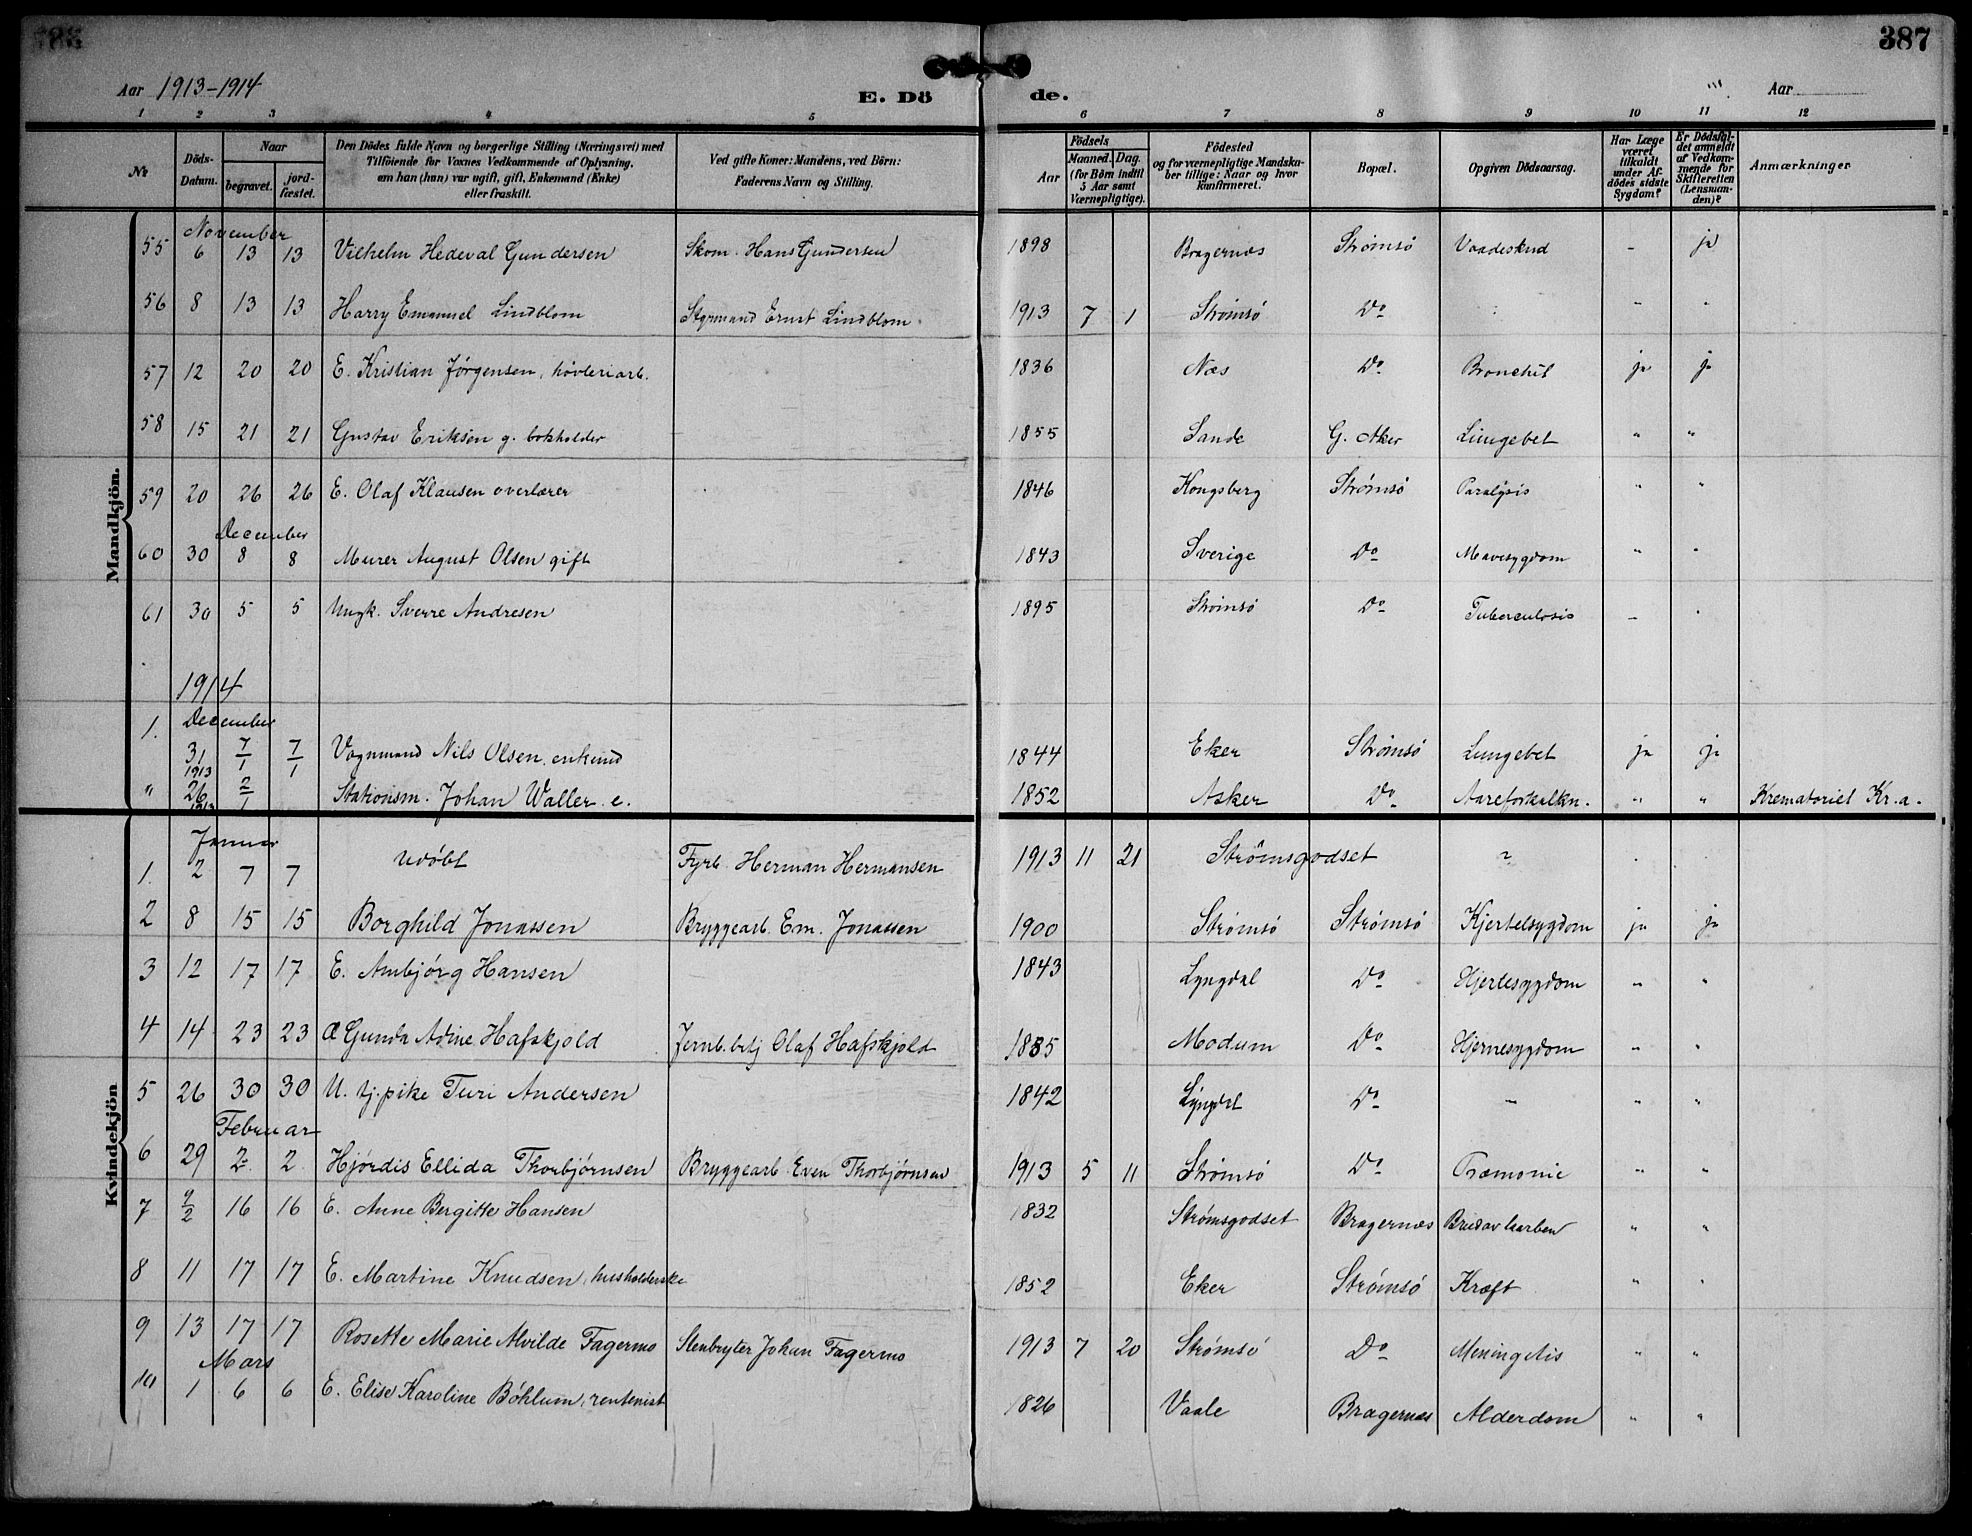 387
Aar 1913-1914
E. Dö de.
Aar
1 2 3 4 5 6 7 8 9 10 11 12
No
Döds-Datum.
Naar
begravet.
jord-fæstet.
Den Dödes fulde Navn og borgerlige Stilling (Næringsvei) med
Tilföiende for Voxnes Vedkommende af Oplysning,
om han (hun) var ugift, gift, Enkemand (Enke)
eller fraskilt.
Ved gifte Koner: Mandens, ved Börn:
Faderens Navn og Stilling.
Födsels
Aar
Maaned. Dag.
(for Börn indtil
5 Aar samt
Værnepligtige).
Födested
og for værnepligtige Mandska-
ber tillige: Naar og hvor
konfirmeret.
Bopæl.
Opgiven Dödsaarsag.
Har Læge
været
tilkaldt
under Af-
dödes sidste
Sygdom?
Er Dödsfal-
det anmeldt
af Vedkom-
mende for
Skifteretten
(Lensman-
den)?
Anmærkninger
Mandkjön.
November
55 6 13 13 Vilhelm Hedeval Gundersen Skom. Hans Gundersen 1898 Bragernæs Strømsø Vaadeskud - ja
56 8 13 13 Harry Emanuel Lindblom Styrmand Ernst Lindblom. 1913 7 1 Strømsø Do " "
57 12 20 20 E. Kristian Jørgensen, høvleriarb. 1836 Næs Do Bronchit ja ja
58 15 21 21 Gustav Eriksen g. bokholder 1855 Sande G. Aker Lungebet " "
59 20 26 26 E. Olaf Klausen overlærer 1846 Kongsberg Strømsø Paralysis " "
December
60 30 8 8 Murer August Olsen gift 1843 Sverige Do Mavesygdom " "
61 30 5 5 Ungk. Sverre Andresen 1895 Strømsø Do Tuberculosis -
1914
December
1. 31 1913 7/1 7/1 Vognmand Nils Olsen, enkemd 1844 Eker Strømsø Lungebet ja ja
" 26 1913 2/1 Stationsm. Johan Waller. e. 1852 Asker Do Aareforkalkn. " " Krematoriet Kr.a.
Kvindekjön
Januar
1. 2 7 7 udøbt Fyrb. Herman Hermansen 1913 11 21 Strømsgodset ~
2 8 15 15 Borghild Jonassen Bryggearb. Em. Jonassen 1900 Strømsø Strømsø Kjertelsygdom ja ja
3 12 17 17 E. Ambjørg Hansen 1843 Lyngdal Do Hjertesygdom " "
4 14 23 23 Gunda Adine Hafskjold Jernb.betj Olaf Hafskjold Modum Do Hjernesygdom " "
5 26 30 30 U. tj.pike Turi Andersen 1842 Lyngdal Do - " "
Februar
6 29 2 2 Hjørdis Ellida Thorbjørnsen Bryggearb. Even Thorbjørnsen 1913 5 11 Strømsø Do " "
7 9/2 16 16 E. Anne Bergitte Hansen 1832 Strømsgodset Bragernæs " "
8 11 17 17 E. Martine Knudsen, husholderske 1852 Eker Strømsø Kræft " "
9 13 17 17 Rosette Marie Alvilde Fagermo Stenbryter Johan Fagermo 1913 7 20 Strømsø Do Meningitis " "
Mars
10 1 6 6 E. Elise Karoline Bøhlum, rentenist 1826 Vaale Bragernæs Alderdom " "